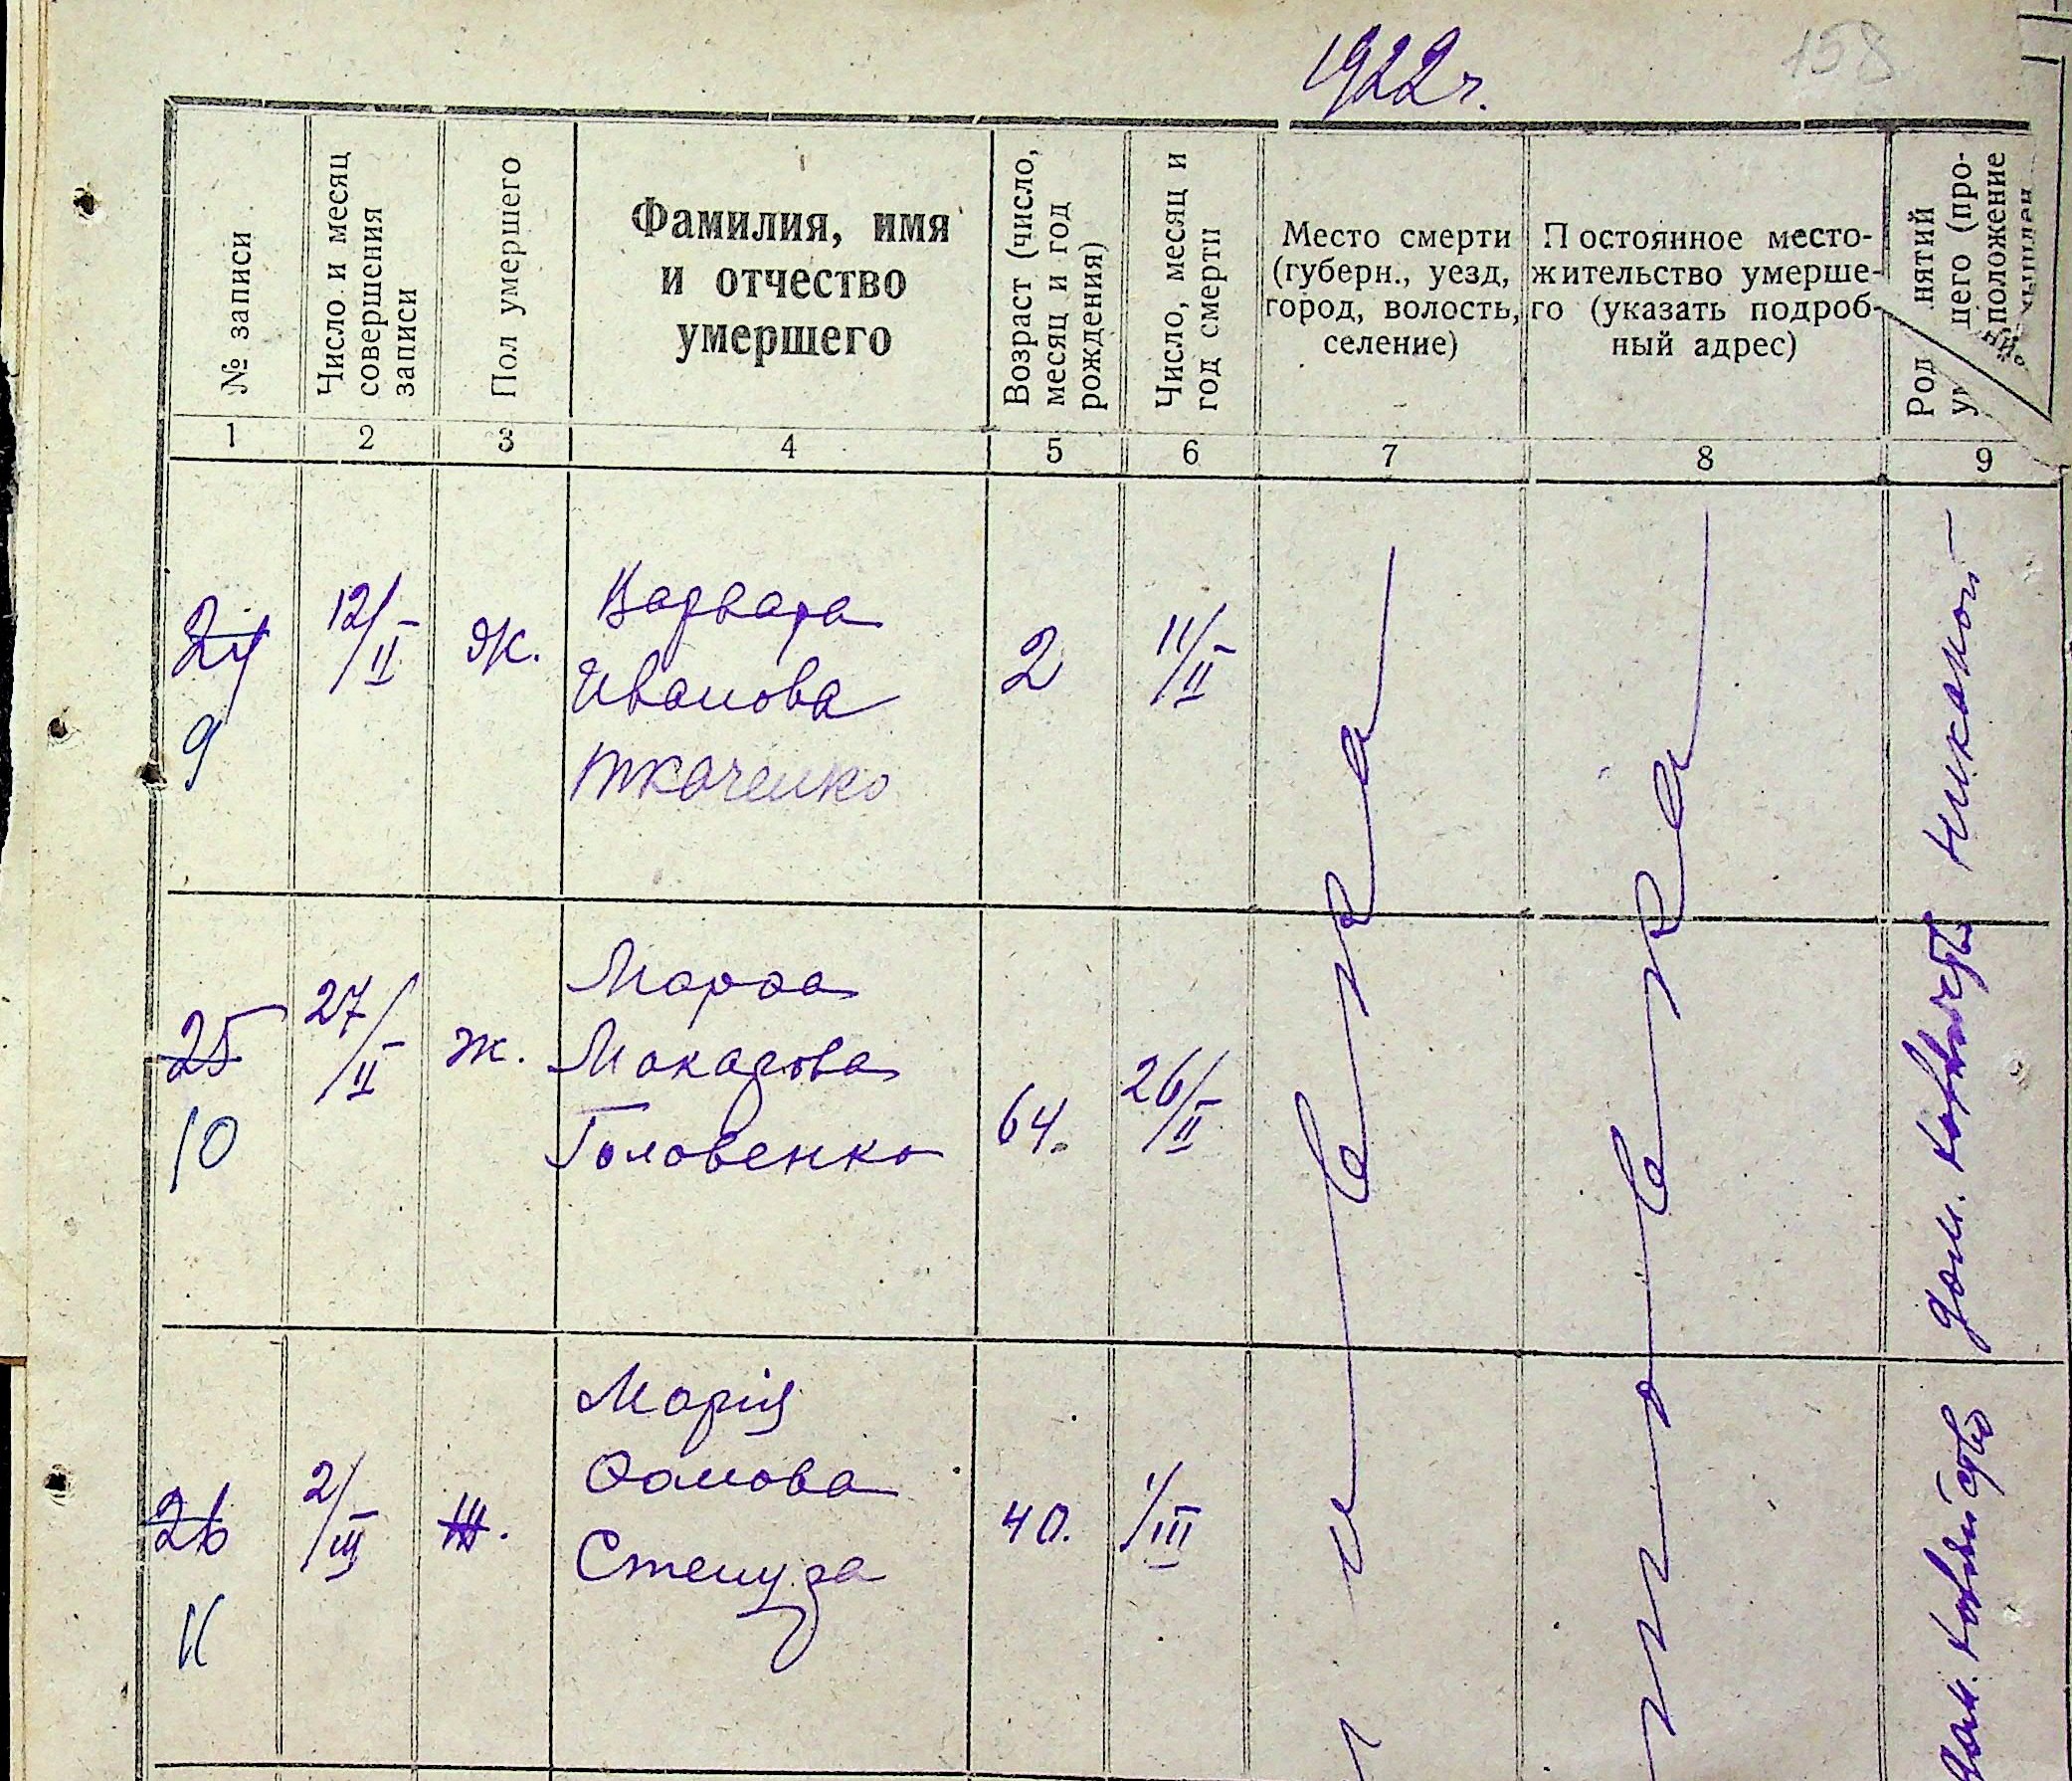 1922 г.
158
№ записи
Число и месяц
совершения
записи
Пол умершего
Фамилия, имя
и отчество
умершего
Возраст (число,
месяц и год
рождения)
Число, месяц и
год смерти
Место смерти
(губерн., уезд,
город, волость,
селение)
Постоянное место-
жительство умерше-
го (указать подроб-
ный адрес)
Род нятий
цего (про-
положение
1
2
3
4
5
6
7
8
9
24
9
12/II
ж.
Варвара
Иванова
Ткаченко
2
11/II
Никакой
25
10
27/II
ж.
Марфа
Макарова
Головенко
64.
26/II
дом.
26
11
2/III
Ж.
Марія
Фомова
40.
1/III
дом.